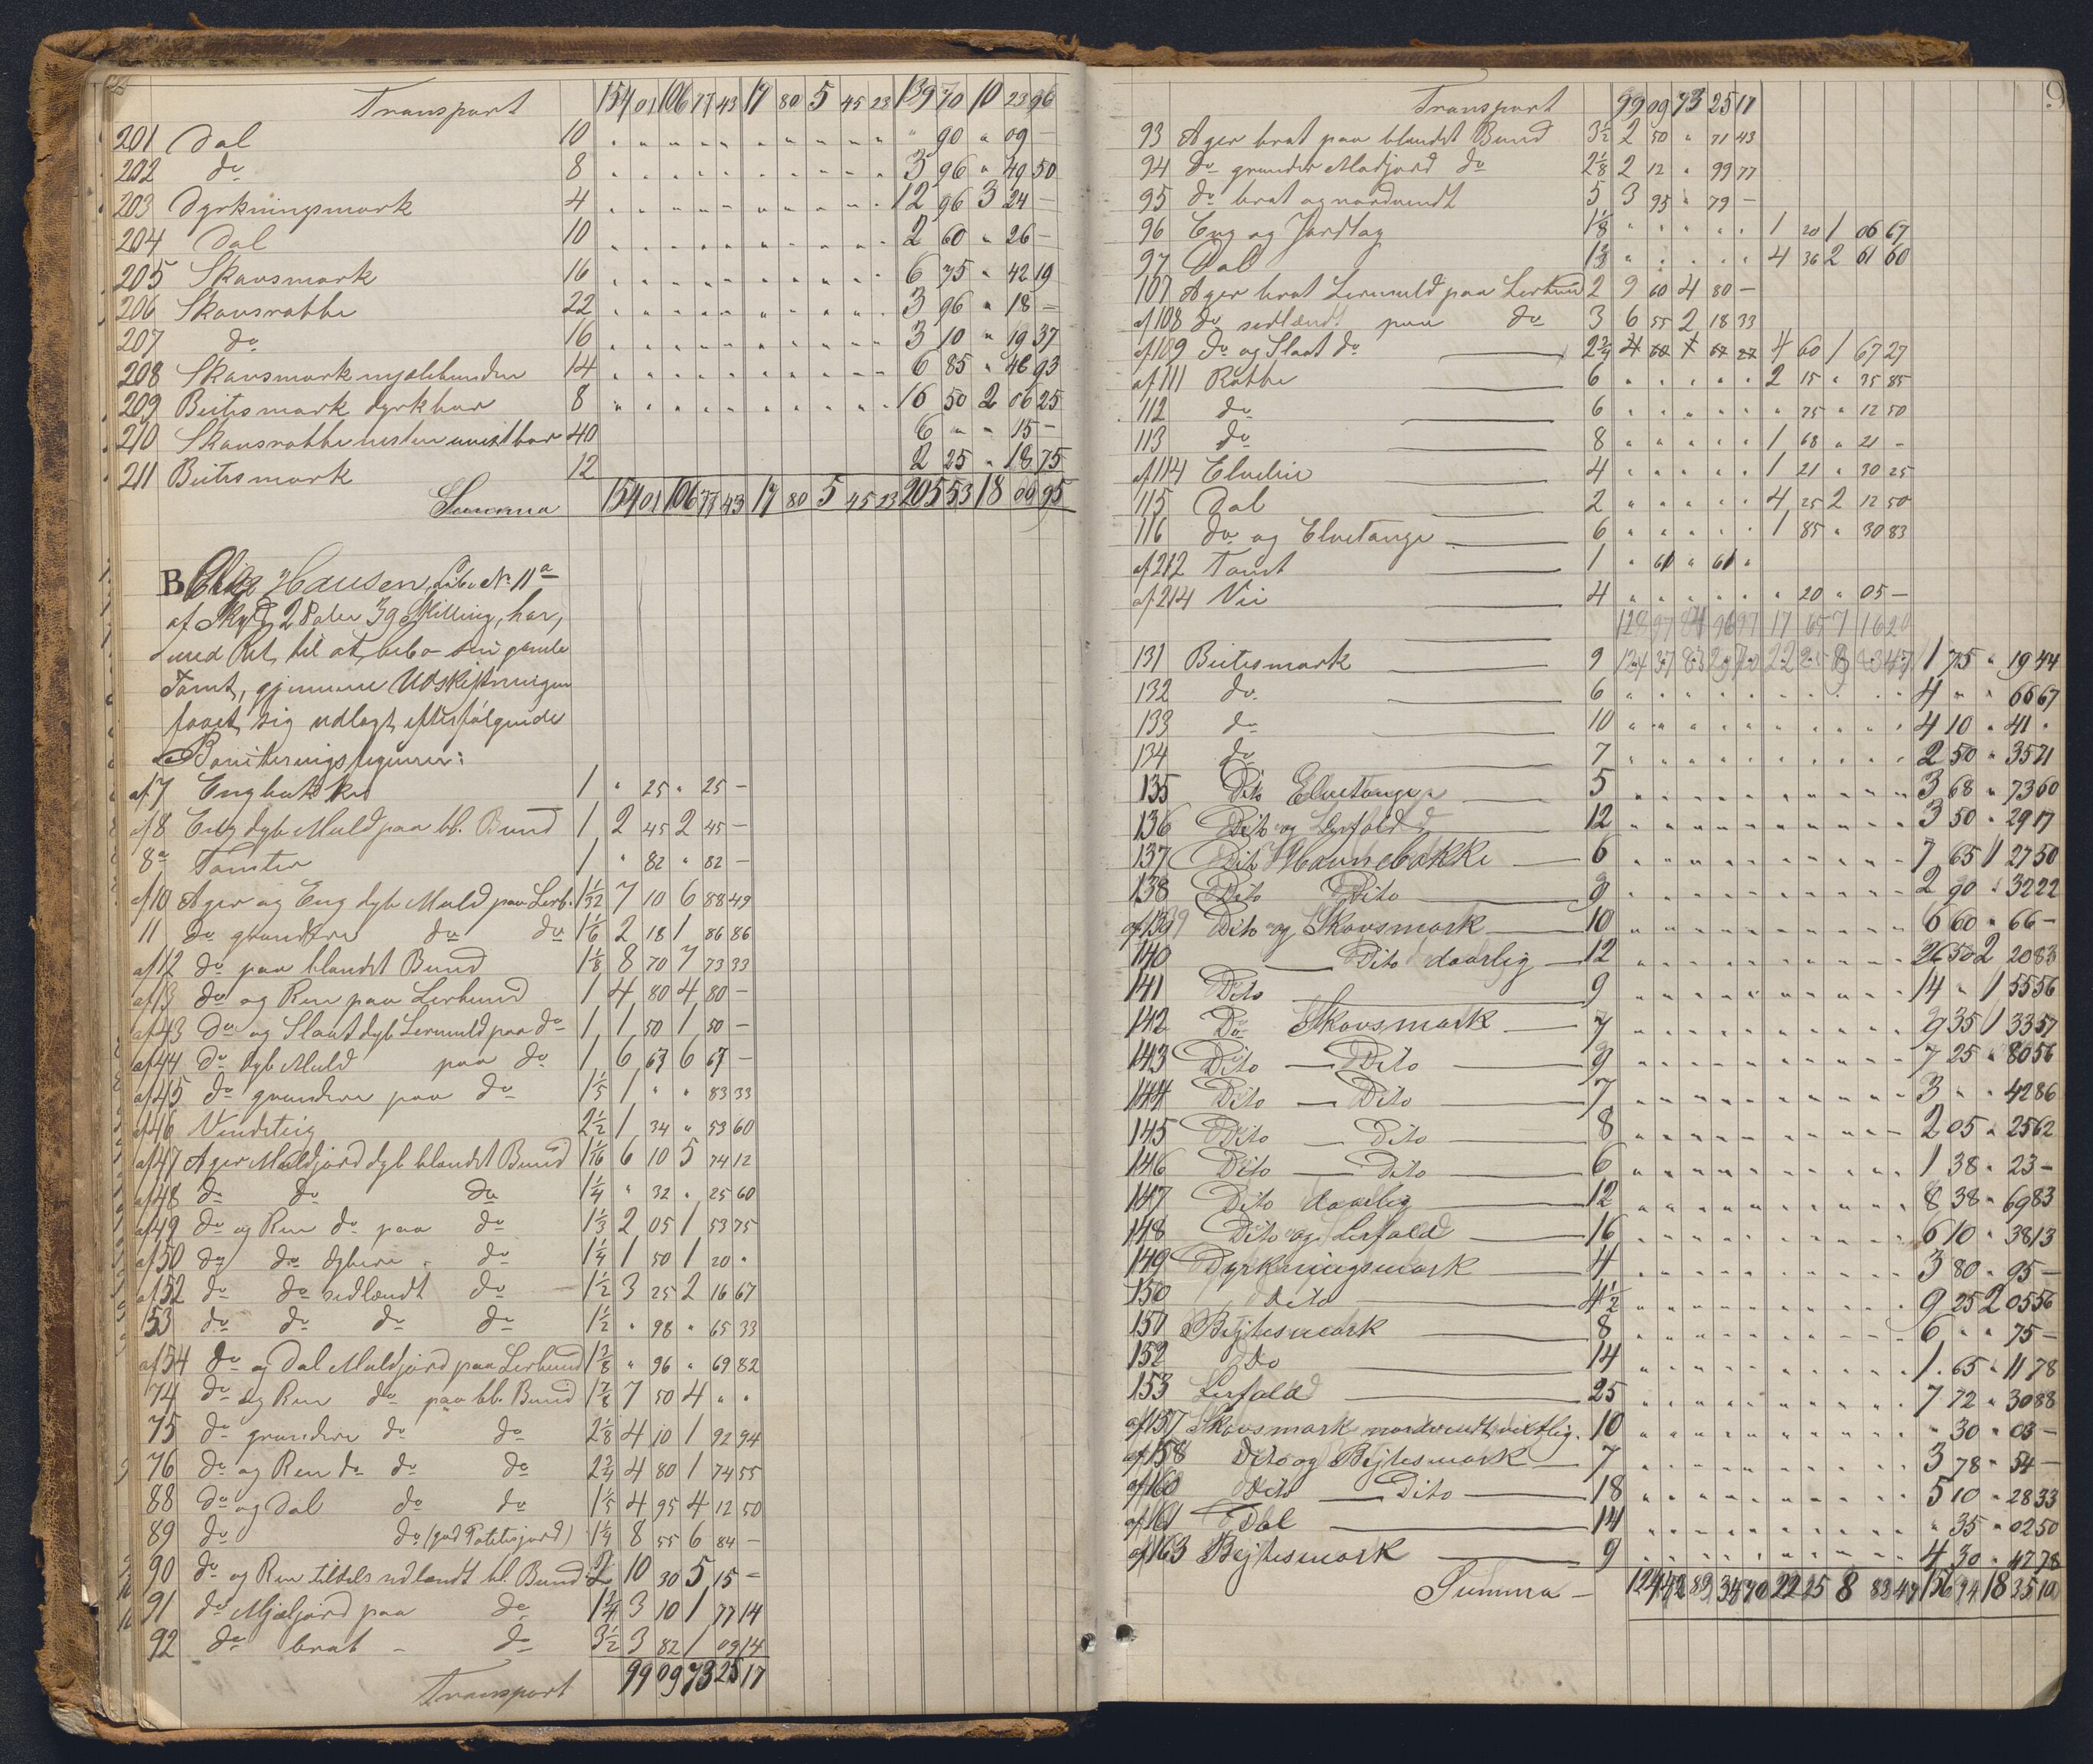 Transport 154 01 106 77 43 17 80 5 45 23 139 70 10 23 96
201 Dal 10 " 90 " 09 –
202 do 8 3 96 " 49 50
203 Dyrkningsmark 4 12 96 3 24 –
204 Dal 10 2 60 " 26 –
205 Skovsmark 16 6 75 " 42 19
206 Skovsrabbe 22 3 96 " 18 –
207 do 16 3 10 " 19 37
208 Skovsmark mjælebunden 14 6 85 " 48 93
209 Beitesmark dyrkbar 8 16 50 2 06 25
210 Skovsrabbe nesten unyttbar 40 6 " " 15 –
211 Beitesmark 12 2 25 " 18 75
Summa 154 01 106 77 43 17 80 5 45 23 205 53 18 09 95
B Hansen, Løbe No 11a
af Skyld 2 Daler 39 Skilling, har,
med Ret til at bebo sin gamle
Tomt, gjennem Udskiftningen
faaet sig udlagt efterfølgende
Boniteringsfigurer:
af 7 Engbakke 1 " 25 " 25 –
af 8 Eng dyb Muld paa bl. Bund 1 2 45 2 45 –
8a Tomter 1 " 82 " 82 –
af 10 Ager og Eng dyb Muld paa Lerb. 1 1/32 7 10 6 88 49
11 do grundere do do 1 1/6 2 18 1 86 86
af 12 do paa blandet Bund 1 1/8 8 70 7 73 33
af 13 do og Ren paa Lerbund 1 4 80 4 80 –
af 43 do og Slaat dyb Lermuld paa do 1 1 50 1 50 –
af 44 do dyb Muld paa do 1 6 67 6 67 –
af 45 do grundere paa do 1 1/5 1 " " 83 33
af 46 Vendeteig 2 1/2 1 34 " 53 60
af 47 Ager Muldjord dyb blandet Bund 1 1/16 6 10 5 74 12
af 48 do do do 1 1/4 " 32 " 25 60
af 49 do og Ren do paa do 1 1/3 2 05 1 53 75
af 50 do do dybere " do 1 1/4 1 50 1 20 "
af 52 do do sidlændt do 1 1/2 3 25 2 16 67
53 do do do do 1 1/2 " 98 " 65 33
af 54 do og Dal Muldjord paa Lerbund 1 3/8 " 96 " 69 82
74 do og Ren do paa bl. Bund 1 7/8 7 50 4 " "
75 do grundere do do 2 1/8 4 10 1 92 94
76 do og Ren do do do 2 3/4 4 80 1 74 55
88 do og Dal do do 1 1/5 4 95 4 12 50
89 do do (god Potetesjord) 1 1/4 8 55 6 84 –
90 do og Ren tildels sidlændt bl. Bund 2 10 30 5 15 –
91 do Mjæljord paa do 1 3/4 3 10 1 77 14
92 do brat – do 3 1/2 3 82 1 09 14
Transport 99 09 73 25 17
9
Transport 99 09 73 25 17
93 Ager brat paa blandet Bund 3 1/2 2 50 " 71 43
94 do grunder Madjord do 2 1/8 2 12 " 99 77
95 do brat og nordvendt 5 3 95 " 79 –
96 Eng og Jordtag 1 1/8 1 20 1 06 67
97 Dal 1 2/3 4 36 2 61 60
107 Ager brat Lermuld paa Lerbund 2 9 60 4 80 –
af 108 do sidlændt paa do 3 6 55 2 18 33
af 109 do og Slaat do 2 3/4 4 60 1 67 27 4 60 1 67 27
af 111 Rabbe 6 2 15 " 35 85
112 do 6 " 75 " 12 50
113 do 8 1 68 " 21 –
af 114 Elvelie 4 1 21 " 30 25
115 Dal 2 4 25 2 12 50
116 do og Elvetange 6 1 85 " 30 83
af 212 Tomt 1 " 61 " 61 "
af 214 Vei 4 " 20 " 05 –
131 Beitesmark 9 1 75 " 19 44
132 do 6 4 " " 66 67
133 do 10 4 10 " 41 "
134 do 7 2 50 " 35 71
135 Dito Elvetange 5 3 68 " 73 60
136 Dito og Lerfald 12 3 50 " 29 17
137 Dito Havnebakke 6 7 65 1 27 50
138 Dito Dito 9 2 90 " 32 22
af 139 Dito og Skovsmark 10 6 60 " 66 –
140 Dito daarlig 12 26 50 2 20 83
141 Dito 9 14 " 1 55 56
142 Do Skovsmark 7 9 35 1 33 57
143 Dito Dito 9 7 25 " 80 56
144 Dito Dito 7 3 " " 42 86
145 Dito Dito 8 2 05 " 25 62
146 Dito Dito 6 1 38 " 23 –
147 Dito daarlig 12 8 38 " 69 83
148 Dito og Lerfald 16 6 10 " 38 13
149 Dyrkningsmark 4 3 80 " 95 –
150 Dito 4 1/2 9 25 2 05 56
151 Bejtesmark 8 6 " " 75 –
152 Do 14 1 65 " 11 78
153 Lerfald 25 7 72 " 30 88
af 157 Skovsmark nordvendt 10 " 30 " 03 –
af 158 Dito og Bejtesmark 7 3 78 " 54 –
af 160 Dito Dito 18 5 10 " 28 33
af 161 Dal 14 " 35 " 02 50
af 163 Bejtesmark 9 4 30 " 47 78
Summa – 124 42 83 34 70 22 25 8 83 47 156 94 18 35 10